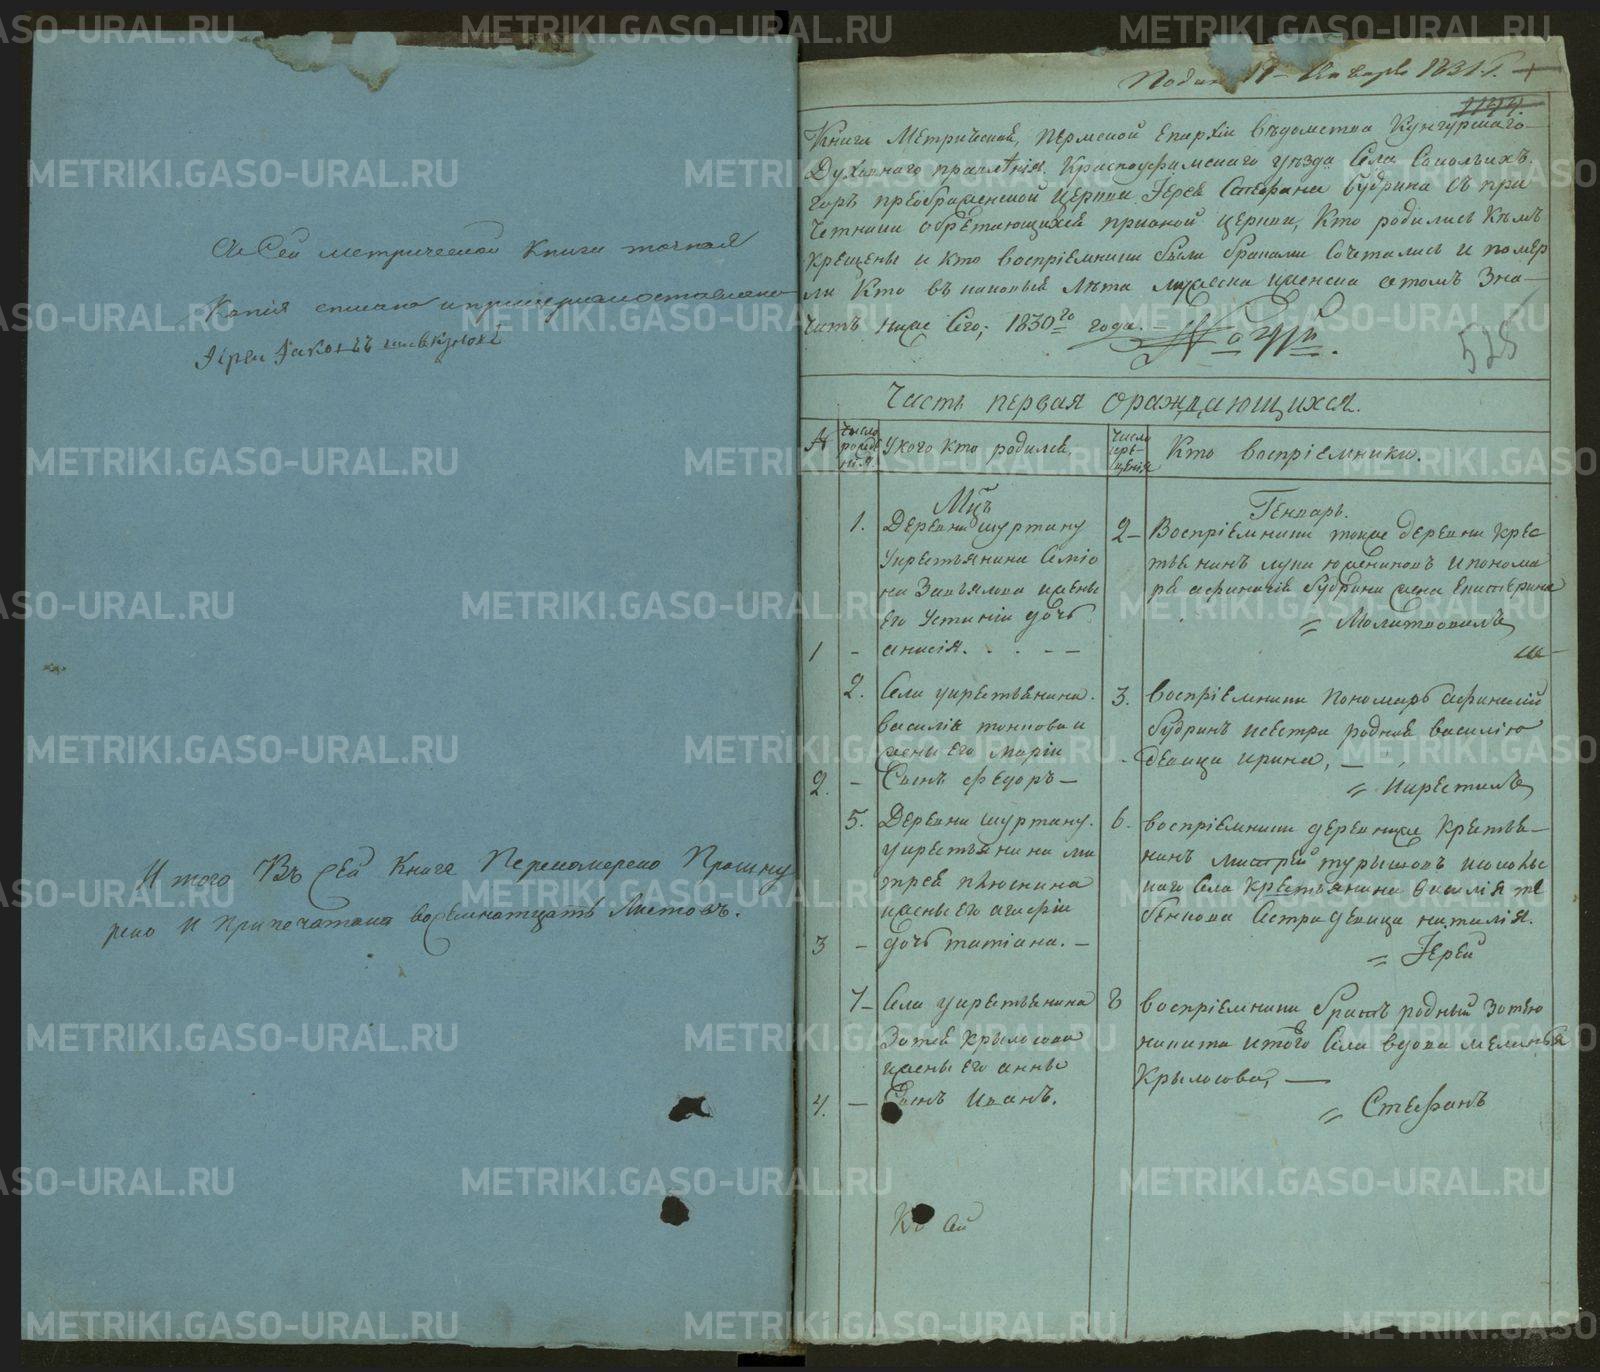 Съ Сей метрической Книги точная
Копія списана и при церкви оставлена
Іерей Іаковъ
И того Въ сей Книге Перенумерено Прошну
рено И Припечатано восемнатцать Листовъ.
Подана 17 Января 1831. Г.
1144
Книга Метрическая, Пермской Епархіи вѣдомства Кунгурскаго
Духовнаго правленія Красноуфимскаго уѣзда Села Сокольихъ
горъ преображенской Церкви Іерея Стефана Будрина съ при
четники обретающихся прионой церкви, Кто родились Кѣмъ
крещены и кто воспріемники были браками Сочетались и помер
ли Кто въ каковыя лѣта мужеска и женска о томъ Зна-
чит ниже Сего; 1830го года.
525
Часть первая ораждающихся.
№
Число рожде нія
У кого кто родился.
Число кре- щенія
Кто воспріемники.
Мцъ
Генварь.
1. Деревни шуртану
укрестьянина Семіо
на Завьялова и жены
Его Устиніи дочь
1 - анисія.
2 Воспріемники тоже деревни крес
тьянинъ лука и понома
ря афанасія будрина жена Екатерина
Молитвовалъ
2. Села укрестьянина
василія и
жены Его Маріи
2. - Сынъ Федоръ -
3. воспріемники Пономарь афанасій
будринъ и сестра родная василію
девица ирина,
И крестилъ
5. Деревни шуртану.
укрестьянина ми
трея
и жены Его агафіи
3 - дочь татіана. -
6. воспріемники деревни же крестья-
нинъ митрей турышовъ и
наго Села крестьянина василія те
бенкова Сестра девица наталія.
Іерей
7 Села укрестьянина
Зотея крылосова
и жены Его анны
4. - Сынъ Иванъ.
8 воспріемники братъ родный Зотею
никита и того Села вдова меланья
Крылосова,
Стефанъ
Къ Сей